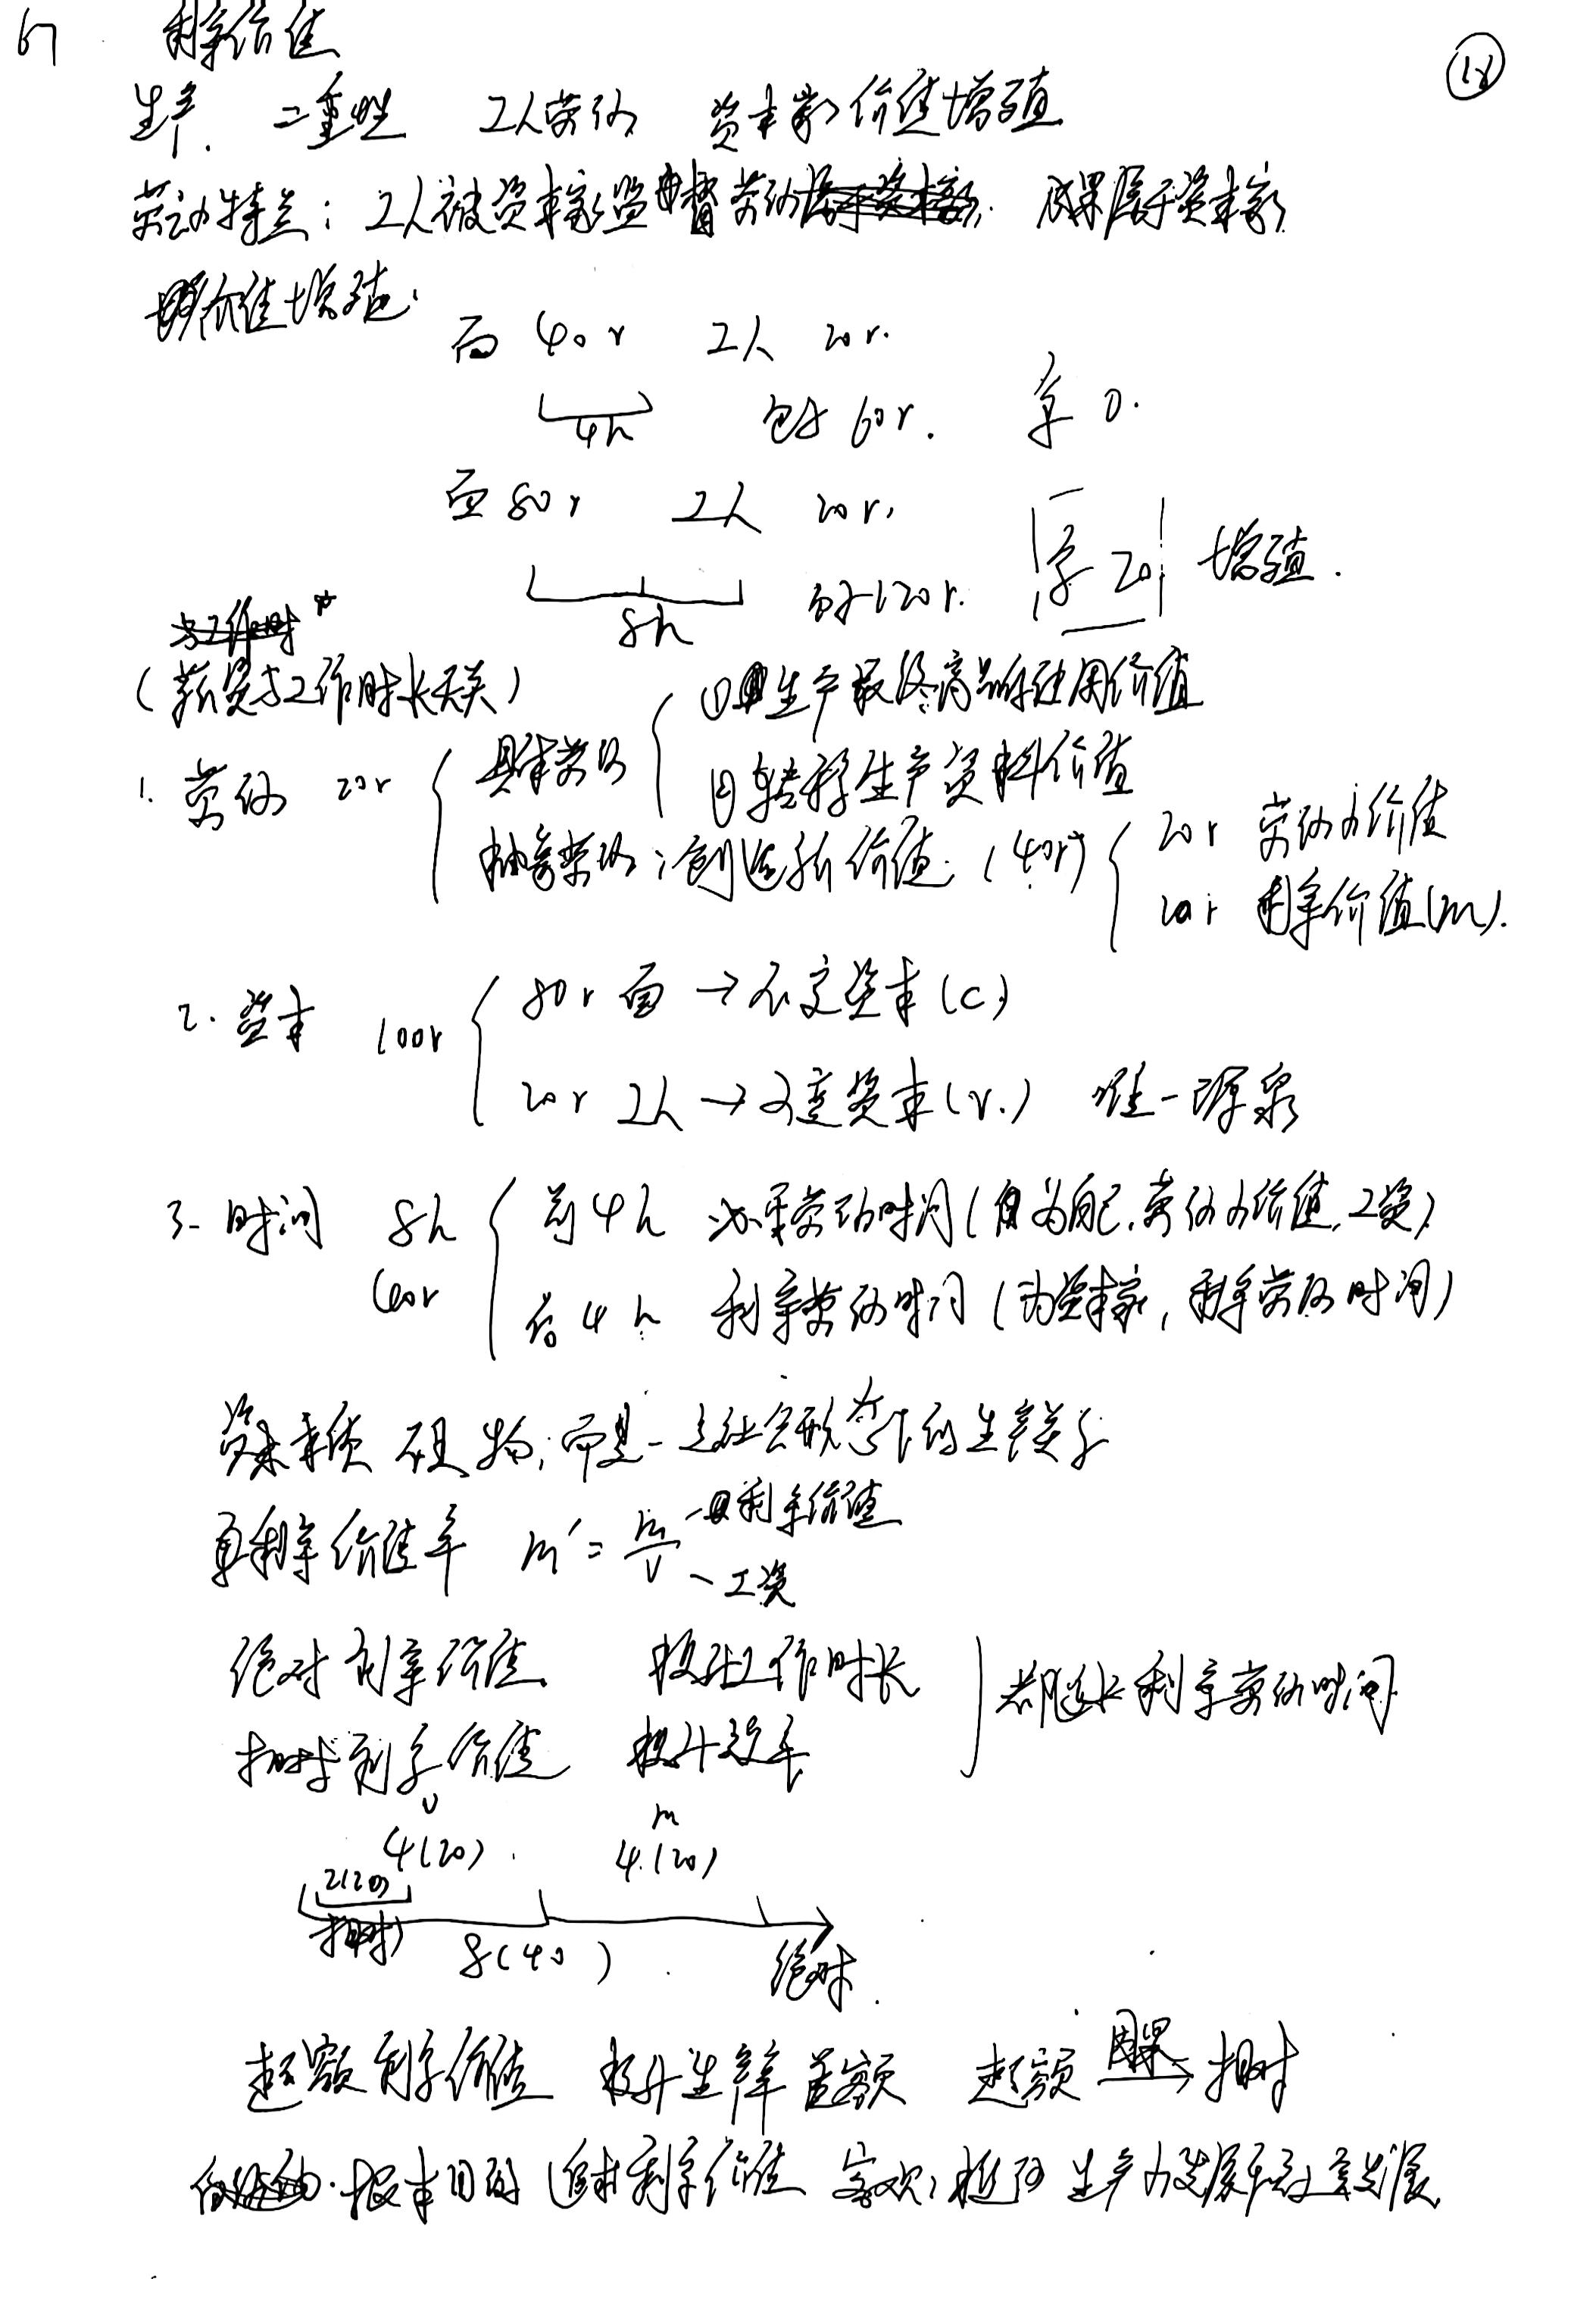 67 剩余价值
18
生产. 二重性 工人劳动 资本家价值增殖
劳动特点: 工人被资本家监督劳动 成果属于资本家
价值增殖.
面 40r 工人 20r.
4h 包子 60r. 余 0.
面 80r 工人 20r.
8h 包子 120r. 余 20 增殖.
(薪资与工作时长无关)
1. 劳动 20r
具体劳动
①生产最终商品的使用价值
②转移生产资料价值
抽象劳动: 创造新价值. (40r)
20r 劳动力价值
20r 剩余价值(m).
2. 资本 100r
80r 面 → 不变资本(c)
20r 工人 → 可变资本(v.) 唯一源泉
3. 时间 8h 40r
前4h 必要劳动时间(为自己.劳动力价值.工资)
后4h 剩余劳动时间(为资本家, 剩余劳动时间)
资本本质 不是物, 而是一定社会形态下的生产关系
剩余价值率 m′=m/v 剩余价值
工资
绝对剩余价值 提升工作时长
相对剩余价值 提升效率
都延长剩余劳动时间
v m
4(20). 4.(20)
2(20)
相对 8(40) 绝对.
超额剩余价值 提升生产率 差额 超额 因果→ 相对
根本目的 追求剩余价值 客观: 推动生产力发展